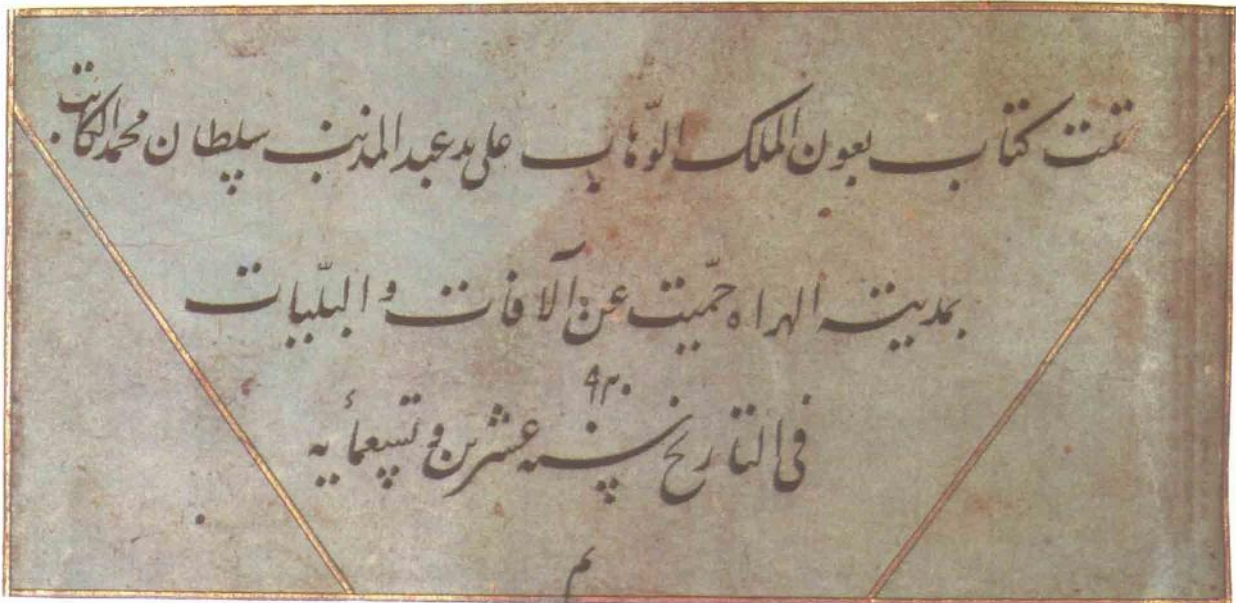 تمت کتاب بعون الملک الوهّاب علی ید عبد المذنب سلطان محمد الکاتب
بمدینة الهراه حمّیت عن الآفات و البلّیات
۹۲۰
فی التاریخ سنه عشرین و تسعمأیه
م